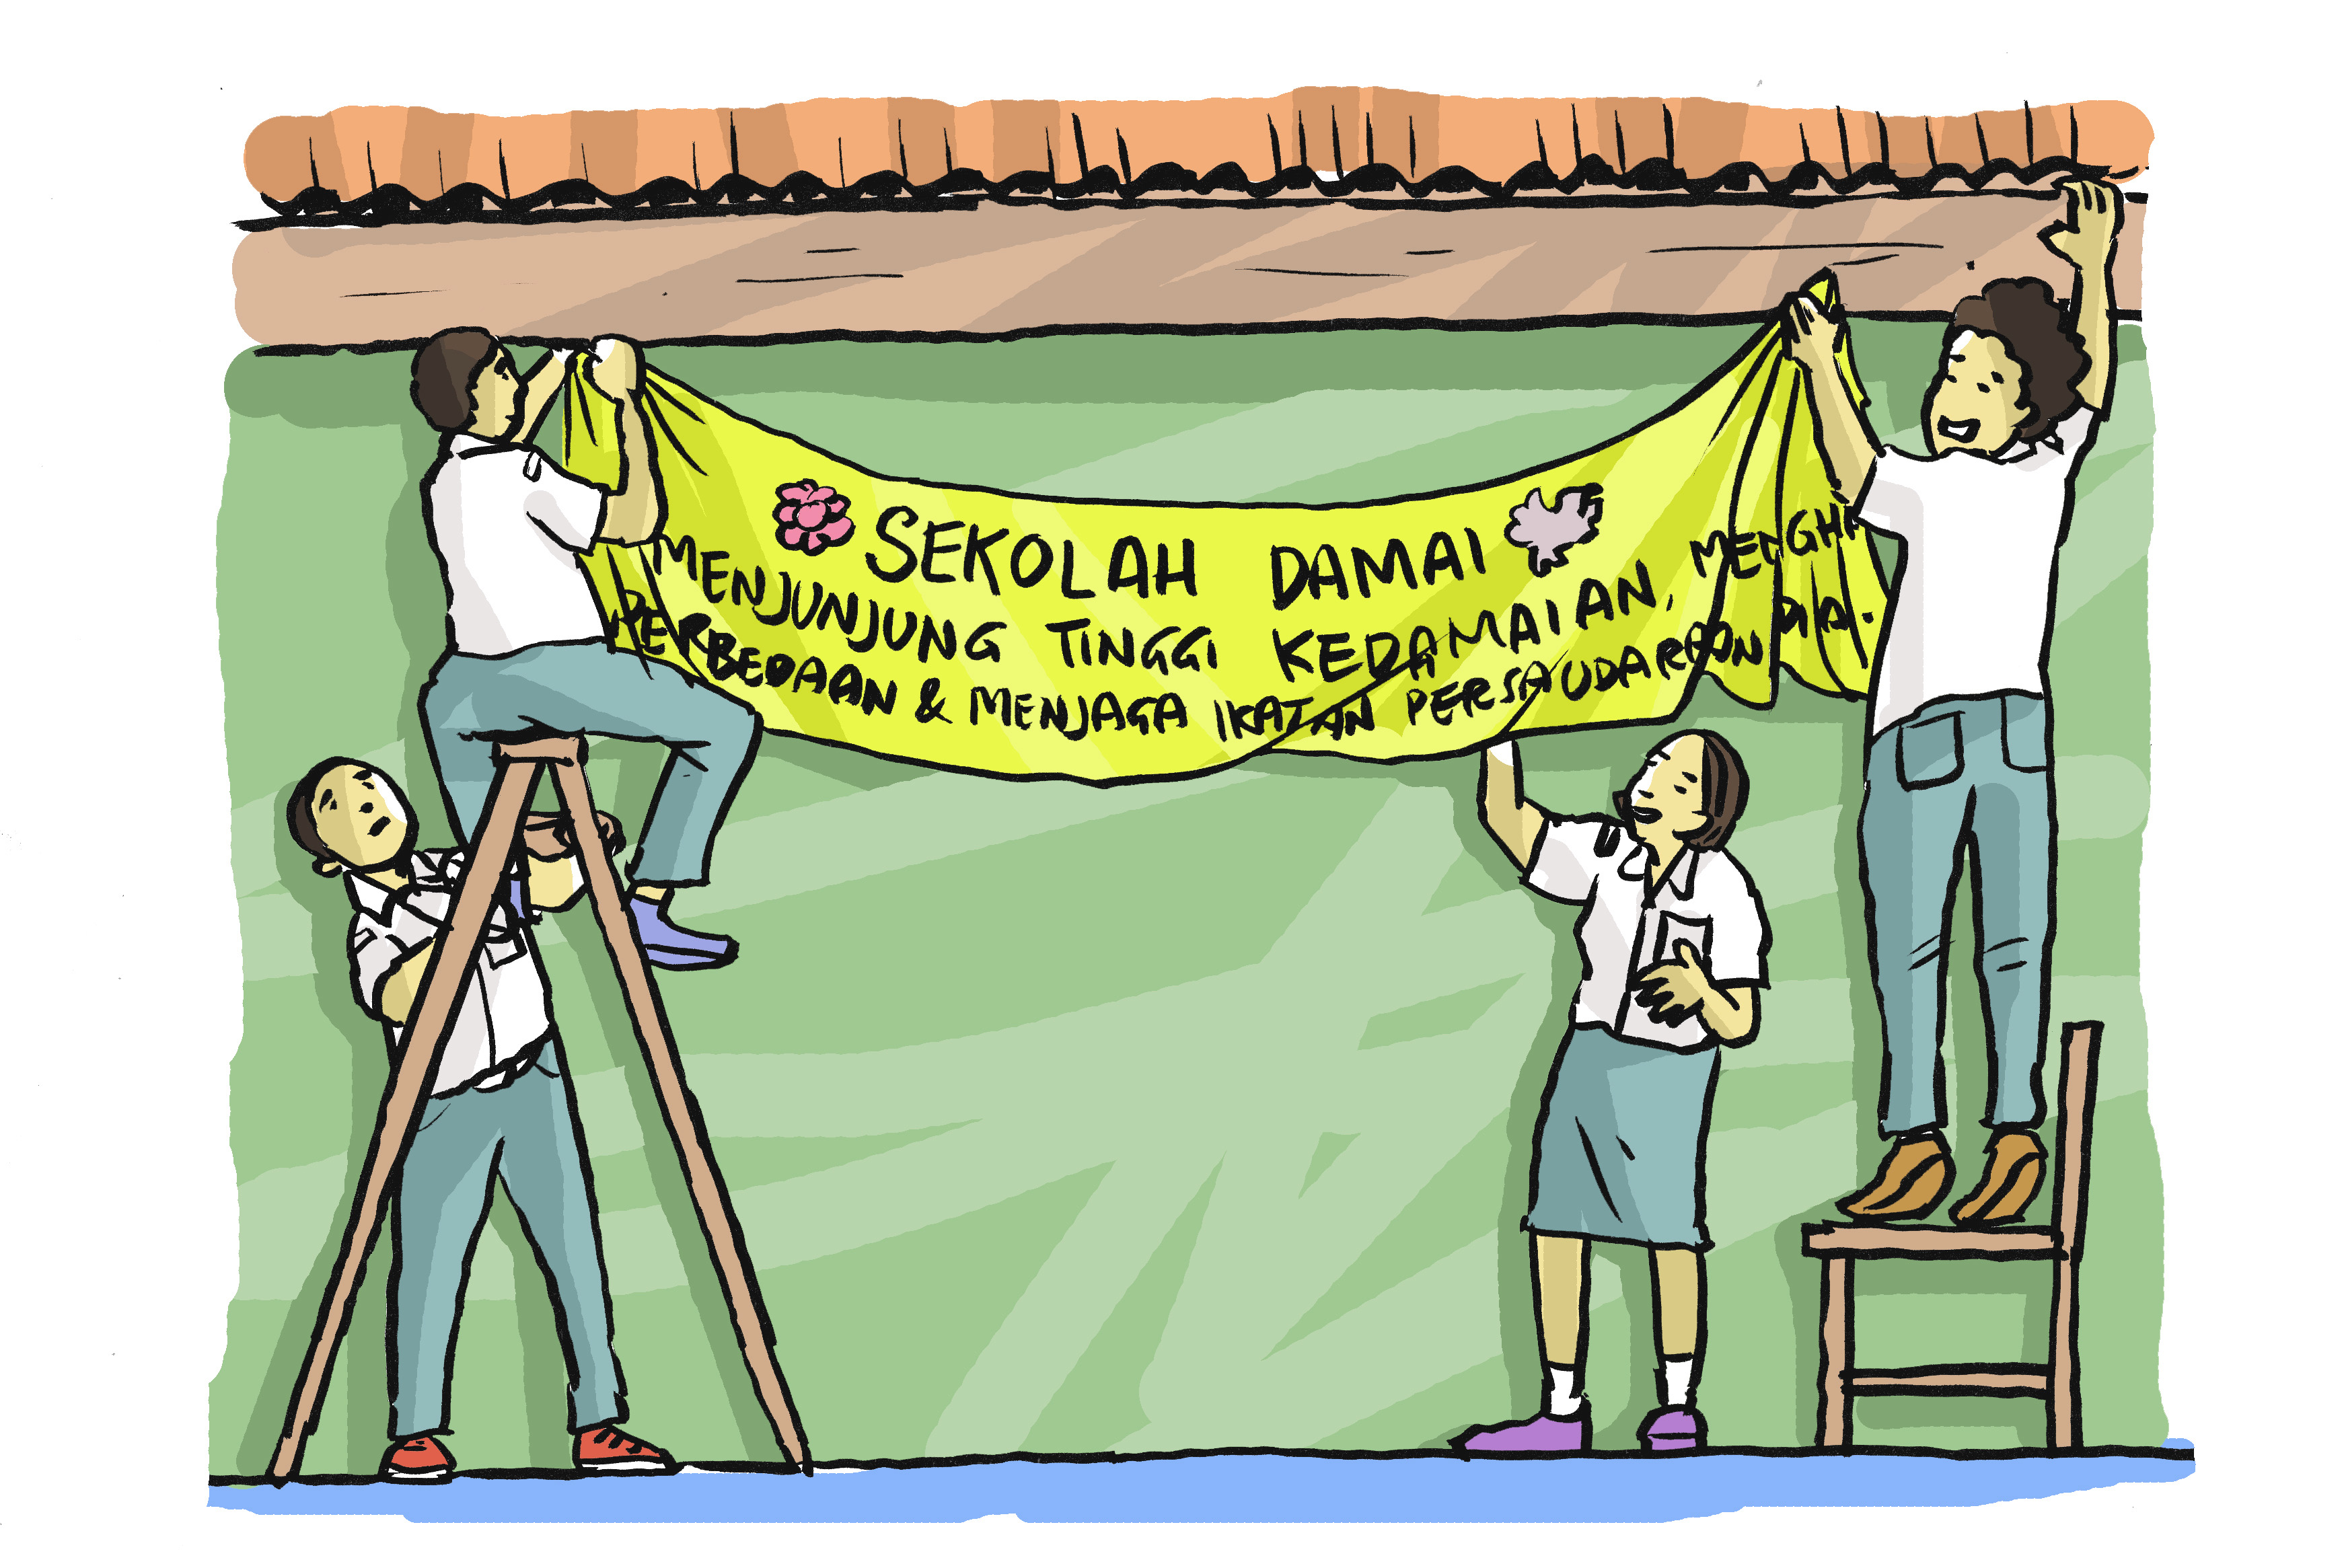 SEKOLAH DAMAI
MENJUNJUNG TINGGI KEDAMAIAN, MENGH
PERBEDAAN & MENJAGA IKATAN PERSAUDARAAN